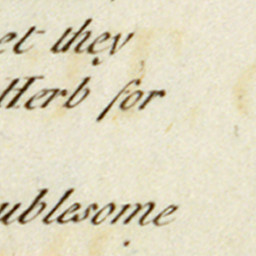 et they
Herb for
ublesome